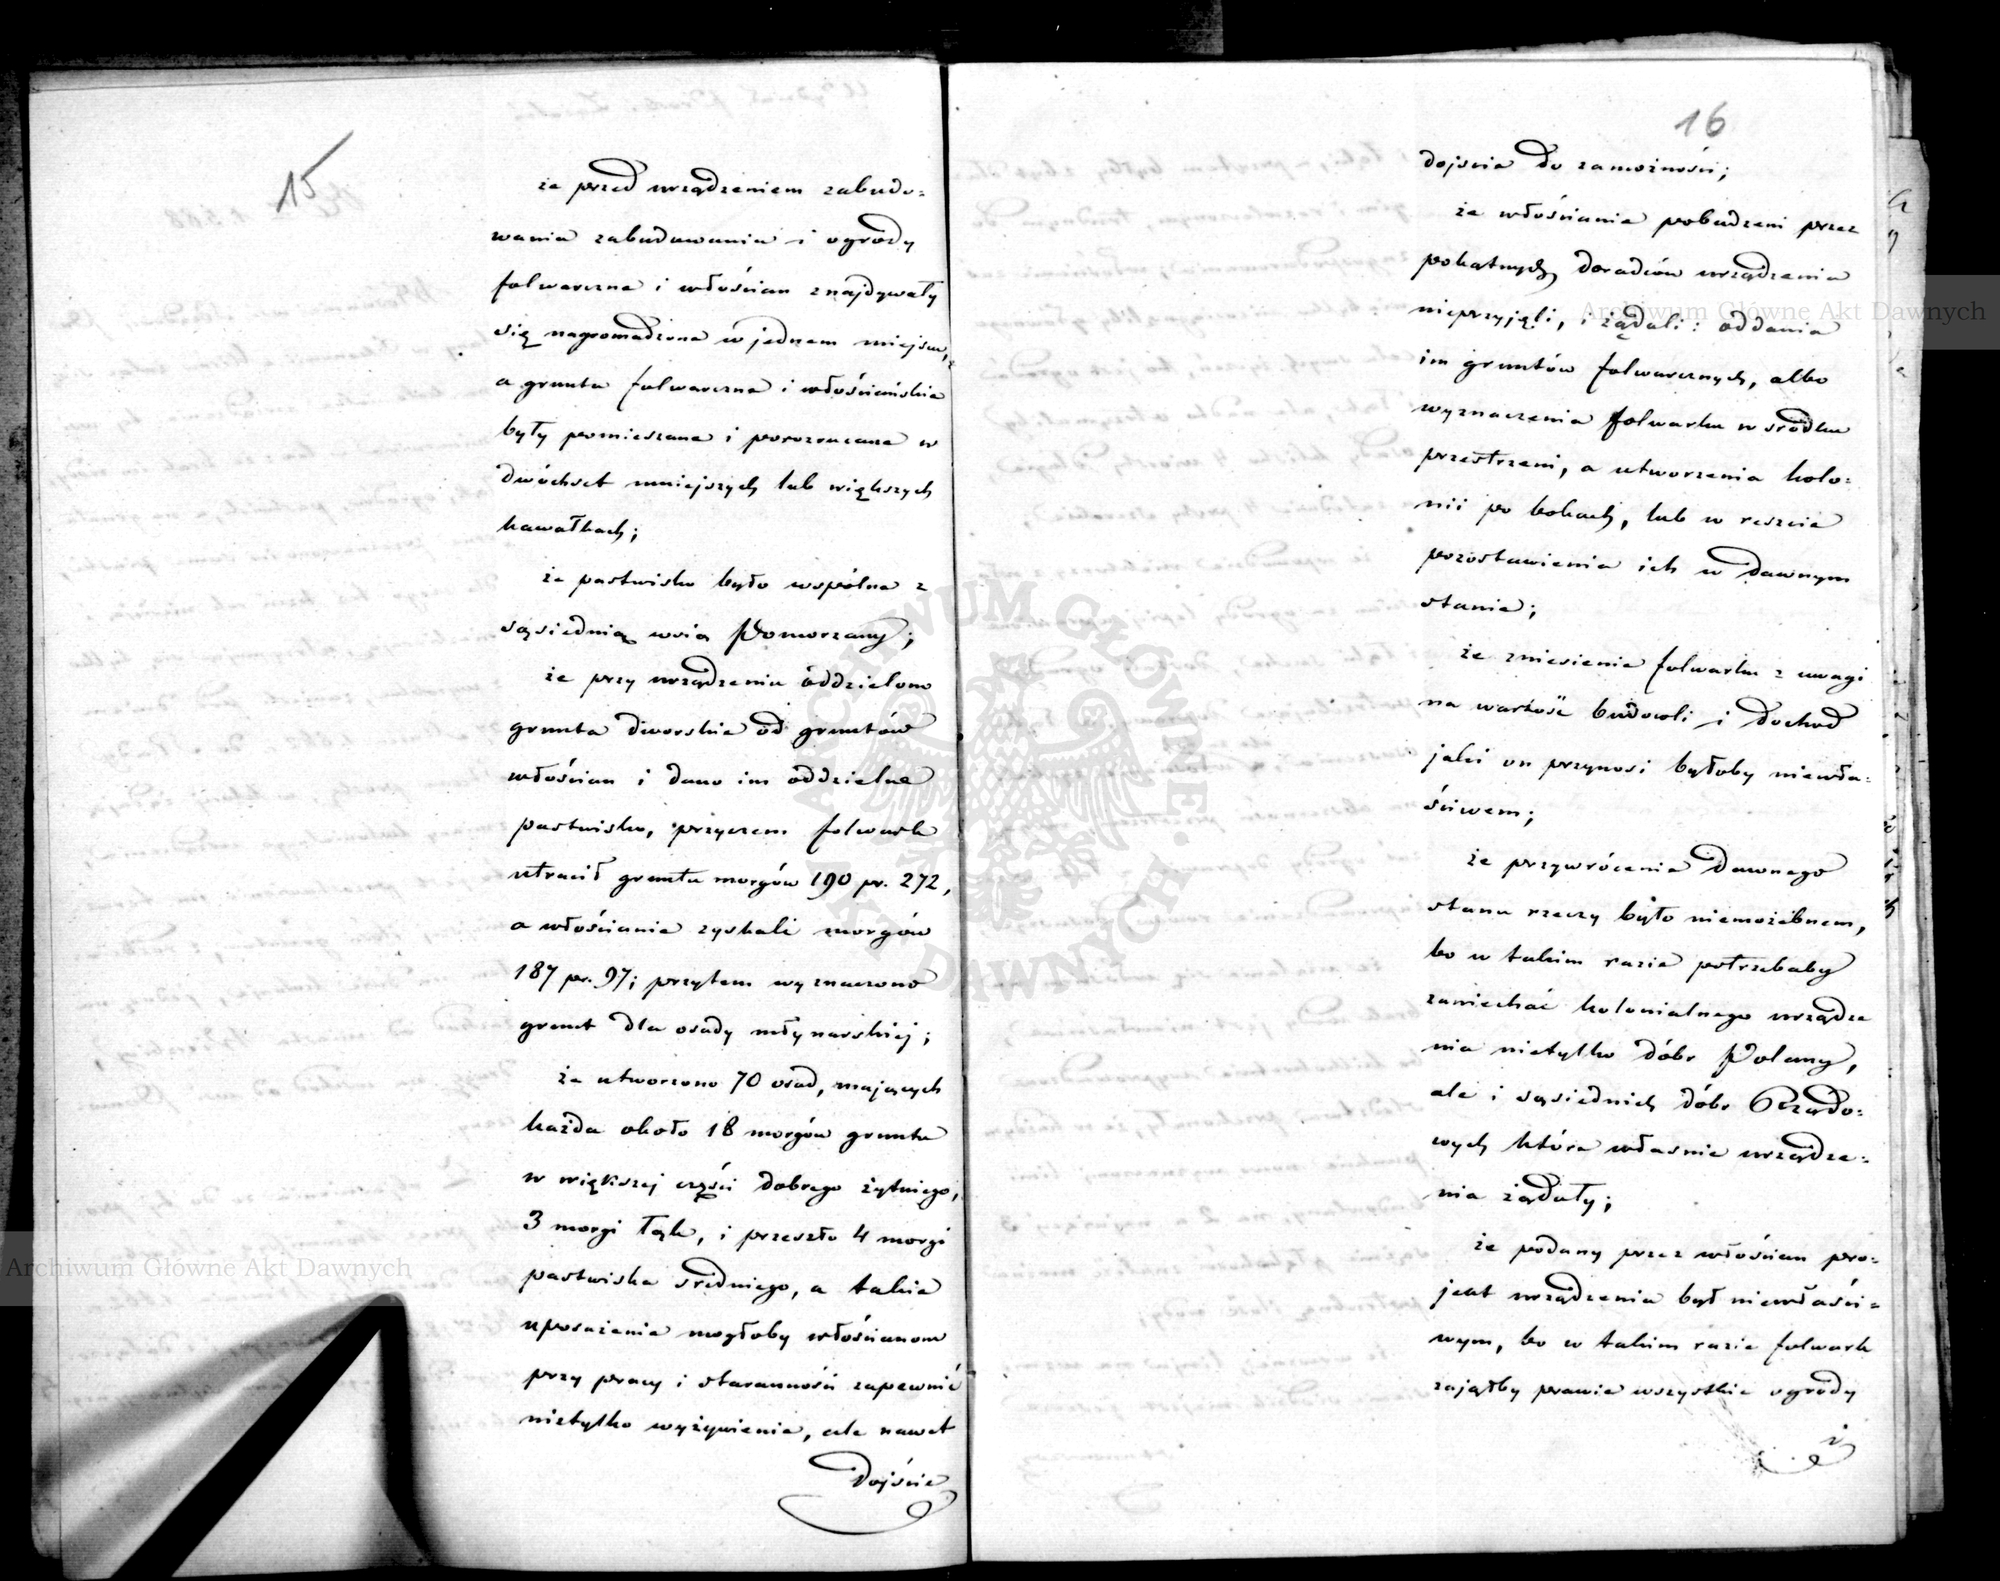 15
że przed urządzeniem zabudo=
wania zabudowania i ogrody
folwarczne i włościan znajdywały
się nagromadzone w jednem miejscu,
a grunta folwarczne i włościańskie
były pomieszane i porozrzucane w
dwóchset mniejszych lub większych
kawałkach;
że pastwisko było wspólne z
sąsiednią wsią Pomorzany;
że przy urządzeniu oddzielono
grunta dworskie od gruntów
włościan i dano im oddzielne
pastwisko, przyczem folwark
utracił gruntu morgów 190 pr. 272,
a włościanie zyskali morgów
187 pr. 97; przytem wyznaczono
grunt dla osady młynarskiej;
że utworzono 70 osad, mających
każda około 18 morgów gruntu
w większej części dobrego żytniego,
3 morgi łąk, i przeszło 4 morgi
pastwiska sredniego, a takie
uposażenie mogłoby włościanom
przy pracy i staranności zapewnić
nietylko wyżywienie, ale nawet
dojście
16
dojscie do zamożności;
że włościanie pobudzeni przez
pokątnych doradców urządzenia
nieprzyjęli, i żądali: oddania
im gruntów folwarcznych, albo
wyznaczenia folwarku w srodku
przestrzeni, a utworzenia kolo=
nii po bokach, lub w reszcie
pozostawienia ich w dawnym
stanie;
że zniesienie folwarku z uwagi
na wartość budowli i dochod
jaki on przynosi byłoby niewła=
ściwem;
że przywrócenie dawnego
stanu rzeczy było niemożebnem,
bo w takim razie potrzebaby
zaniechać kolonialnego urządze
nia nietylko dóbr Polany,
ale i sąsiednich dóbr Rządo=
wych które własnie urządze=
nia żądały;
że podany przez włościan pro=
jekt urządzenia był niewłaści=
wym, bo w takim razie folwark
zająłby prawie wszystkie ogrody
i
Archiwum Główne Akt Dawnych
Archiwum Główne Akt Dawnych
ARCHIWUM GŁÓWNE AKT DAWNYCH